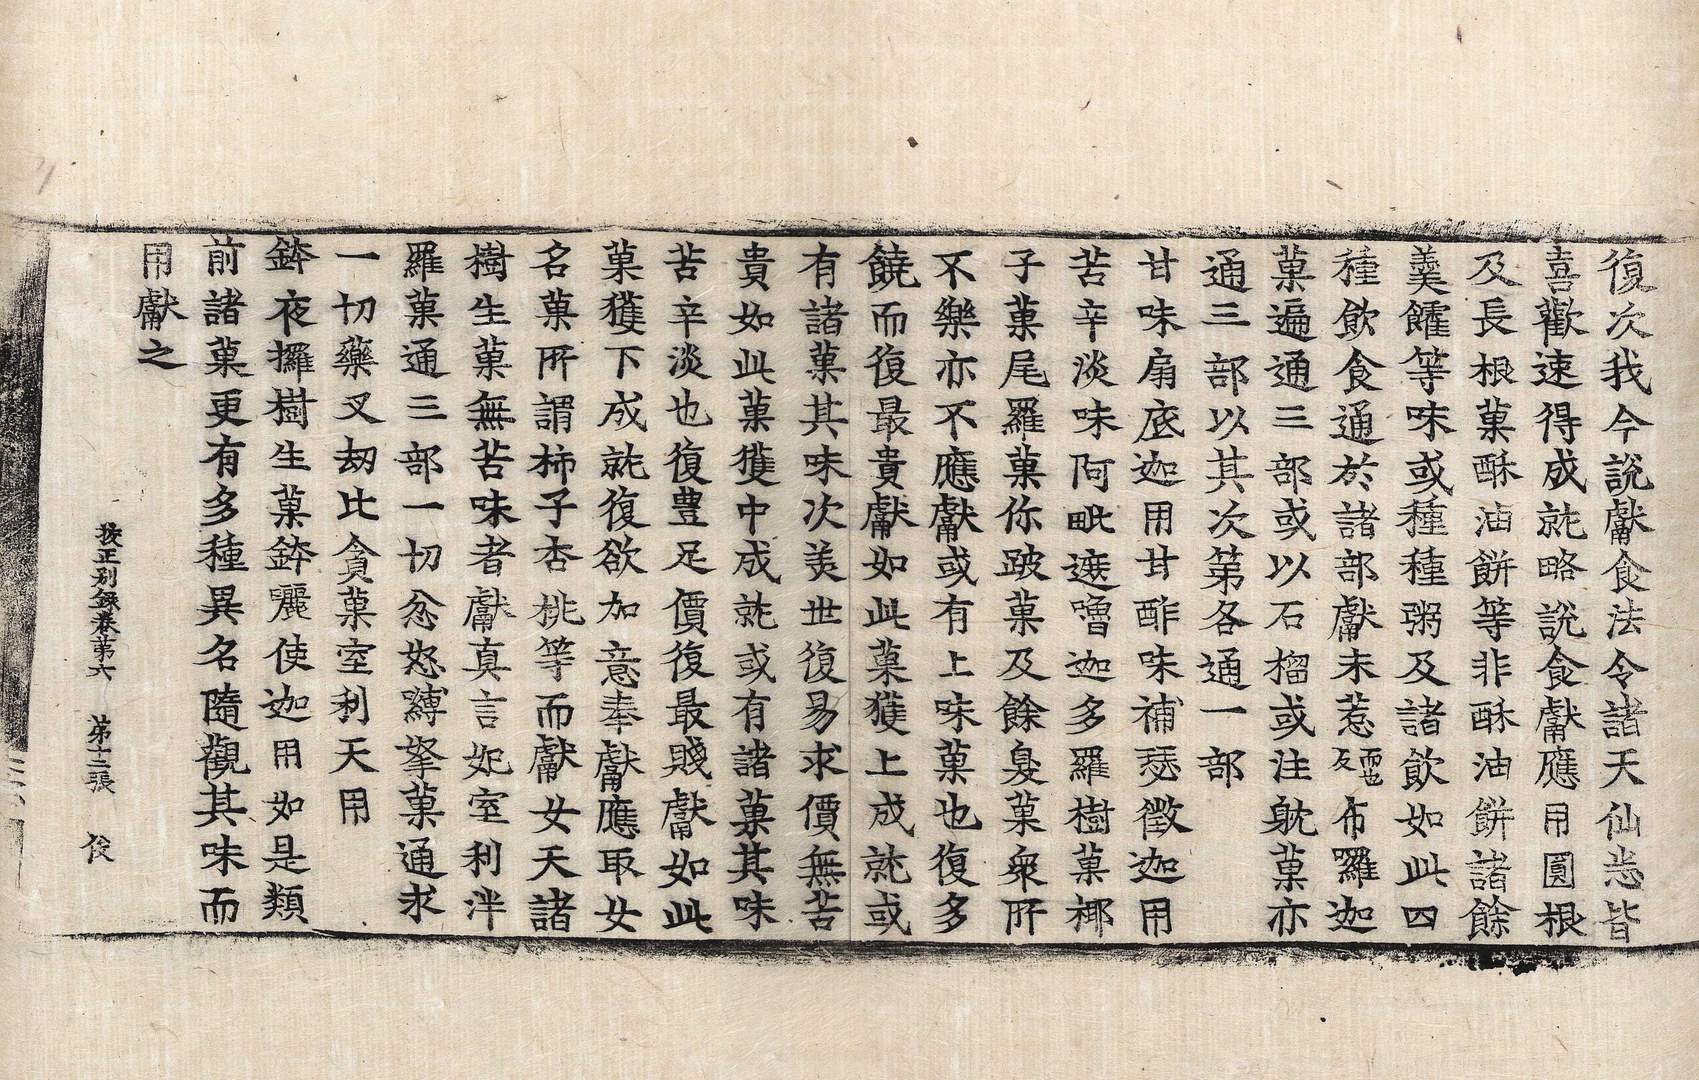 復次我今說獻食法令諸天仙悉皆
喜歡速得成就略說食獻應用圓根
及長根菓酥油餅等非酥油餅諸餘
羹臛等味或種種粥及諸飲如此四
種飲食通於諸部獻未惹而也反布囉迦
菓遍通三部或以石榴或注躭菓亦
通三部以其次第各通一部
甘味扇底迦用甘酢味補瑟徵迦用
苦辛淡味阿毗遮嚕迦多羅樹菓椰
子菓尾羅菓你跛菓及餘臭菓衆所
不樂亦不應獻或有上味菓也復多
饒而復最貴獻如此菓獲上成就或
有諸菓其味次美世復易求價無苦
貴如此菓獲中成就或有諸菓其味
苦辛淡也復豊足價復最賤獻如此
菓獲下成就復欲加意奉獻應取女
名菓所謂柿子杏桃等而獻女天諸
樹生菓無苦味者獻真言妃室利泮
羅菓通三部一切忿怒嚩拏菓通求
一切藥叉刼比貪菓室利天用
鉢夜攞樹生菓鉢囇使迦用如是類
前諸菓更有多種異名隨觀其味而
用獻之
挍正别錄卷第六　第十二張　俊